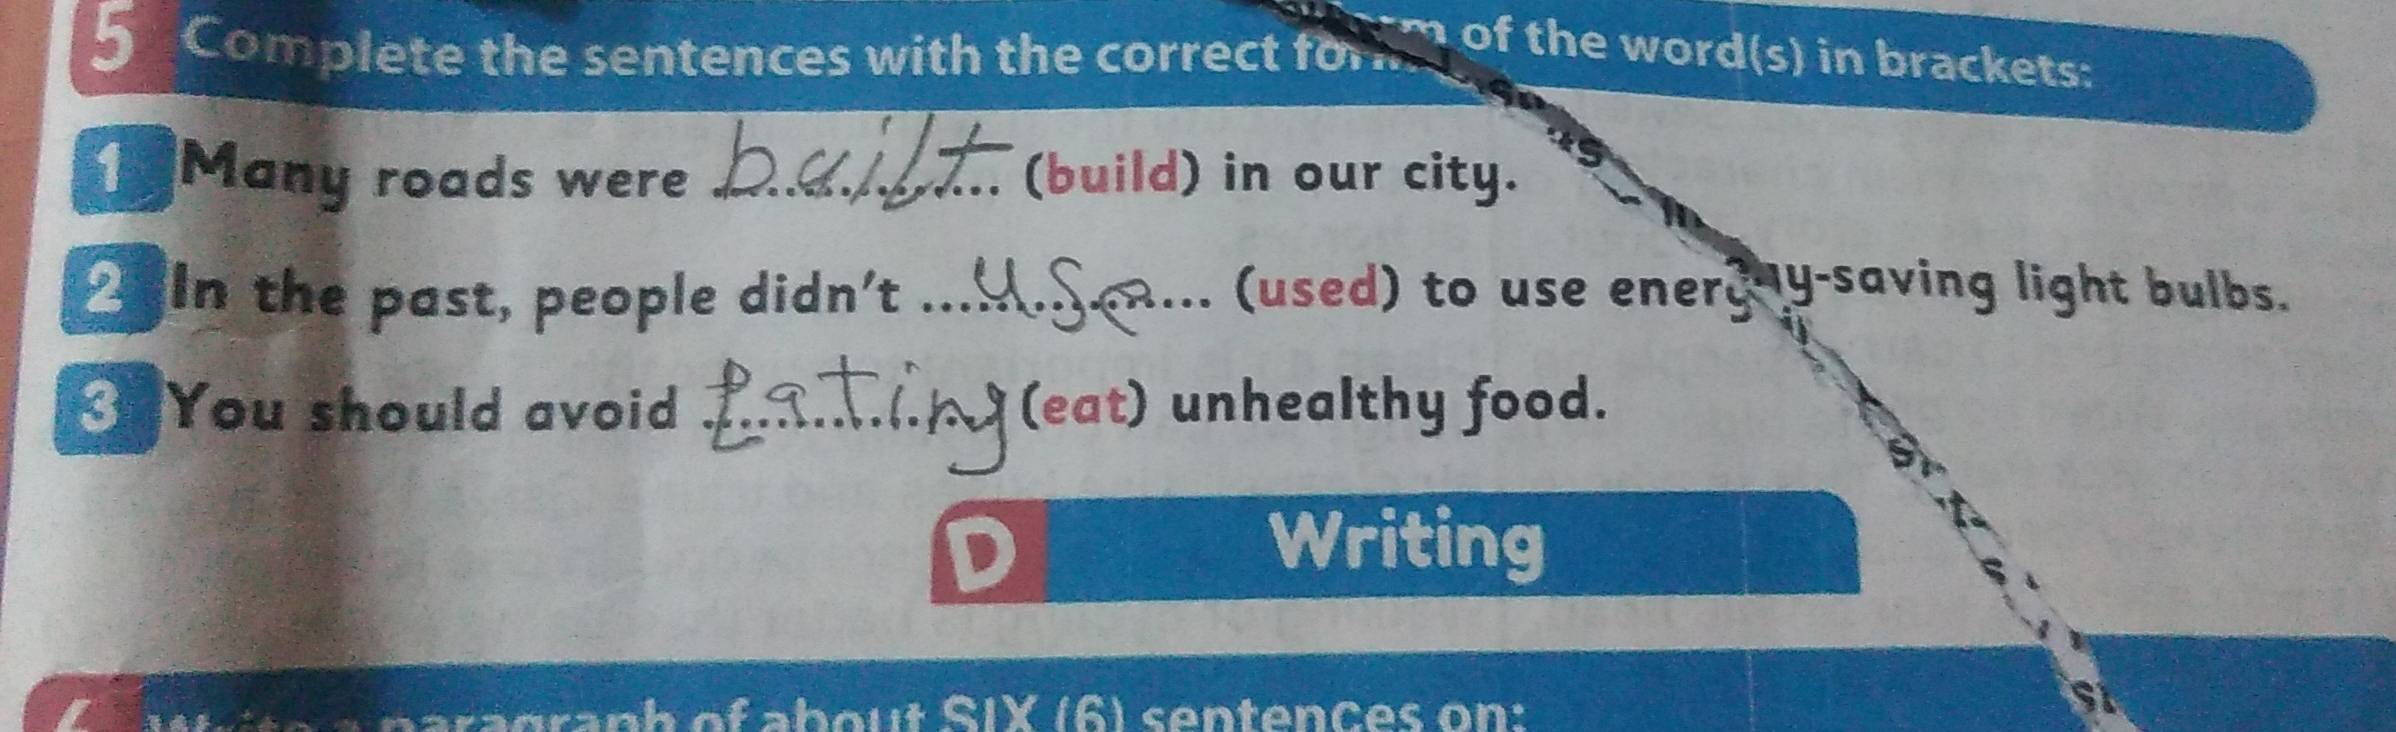 5 Complete the sentences with the correct form of the word(s) in brackets:
1 Many roads were built (build) in our city.
2 In the past, people didn't ....use.... (used) to use energy-saving light bulbs.
3 You should avoid Eating (eat) unhealthy food.
D Writing
6 Write a paragraph of about SIX (6) sentences on: